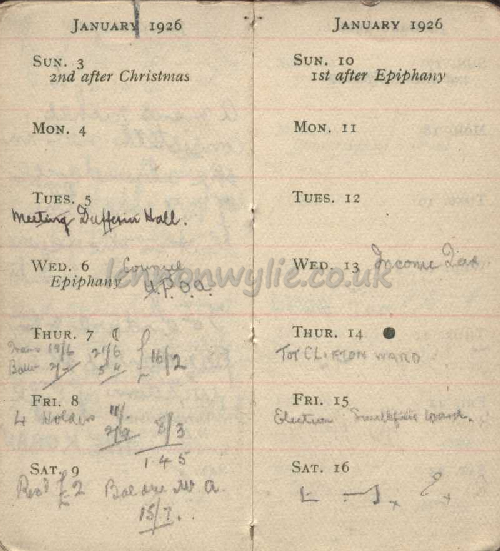 January 1926
Sun. 3
2nd after Christmas
Mon. 4
Tues. 5
Meeting Dufferin Hall.
Wed. 6
Epiphany
Thur. 7
19/6 21/6
£16/2
Fri. 8
4 Holders 11/-
2/9 8/3
1.4.5
Sat. 9
Recd £2 Balance W. a.
15/7.
January 1926
Sun. 10
1st after Epiphany
Mon. 11
Tues. 12
Wed. 13 Income Tax
Thur. 14
Tot Clifton Ward
Fri. 15
Election Smithfield Ward.
Sat. 16
lennonwylie.co.uk